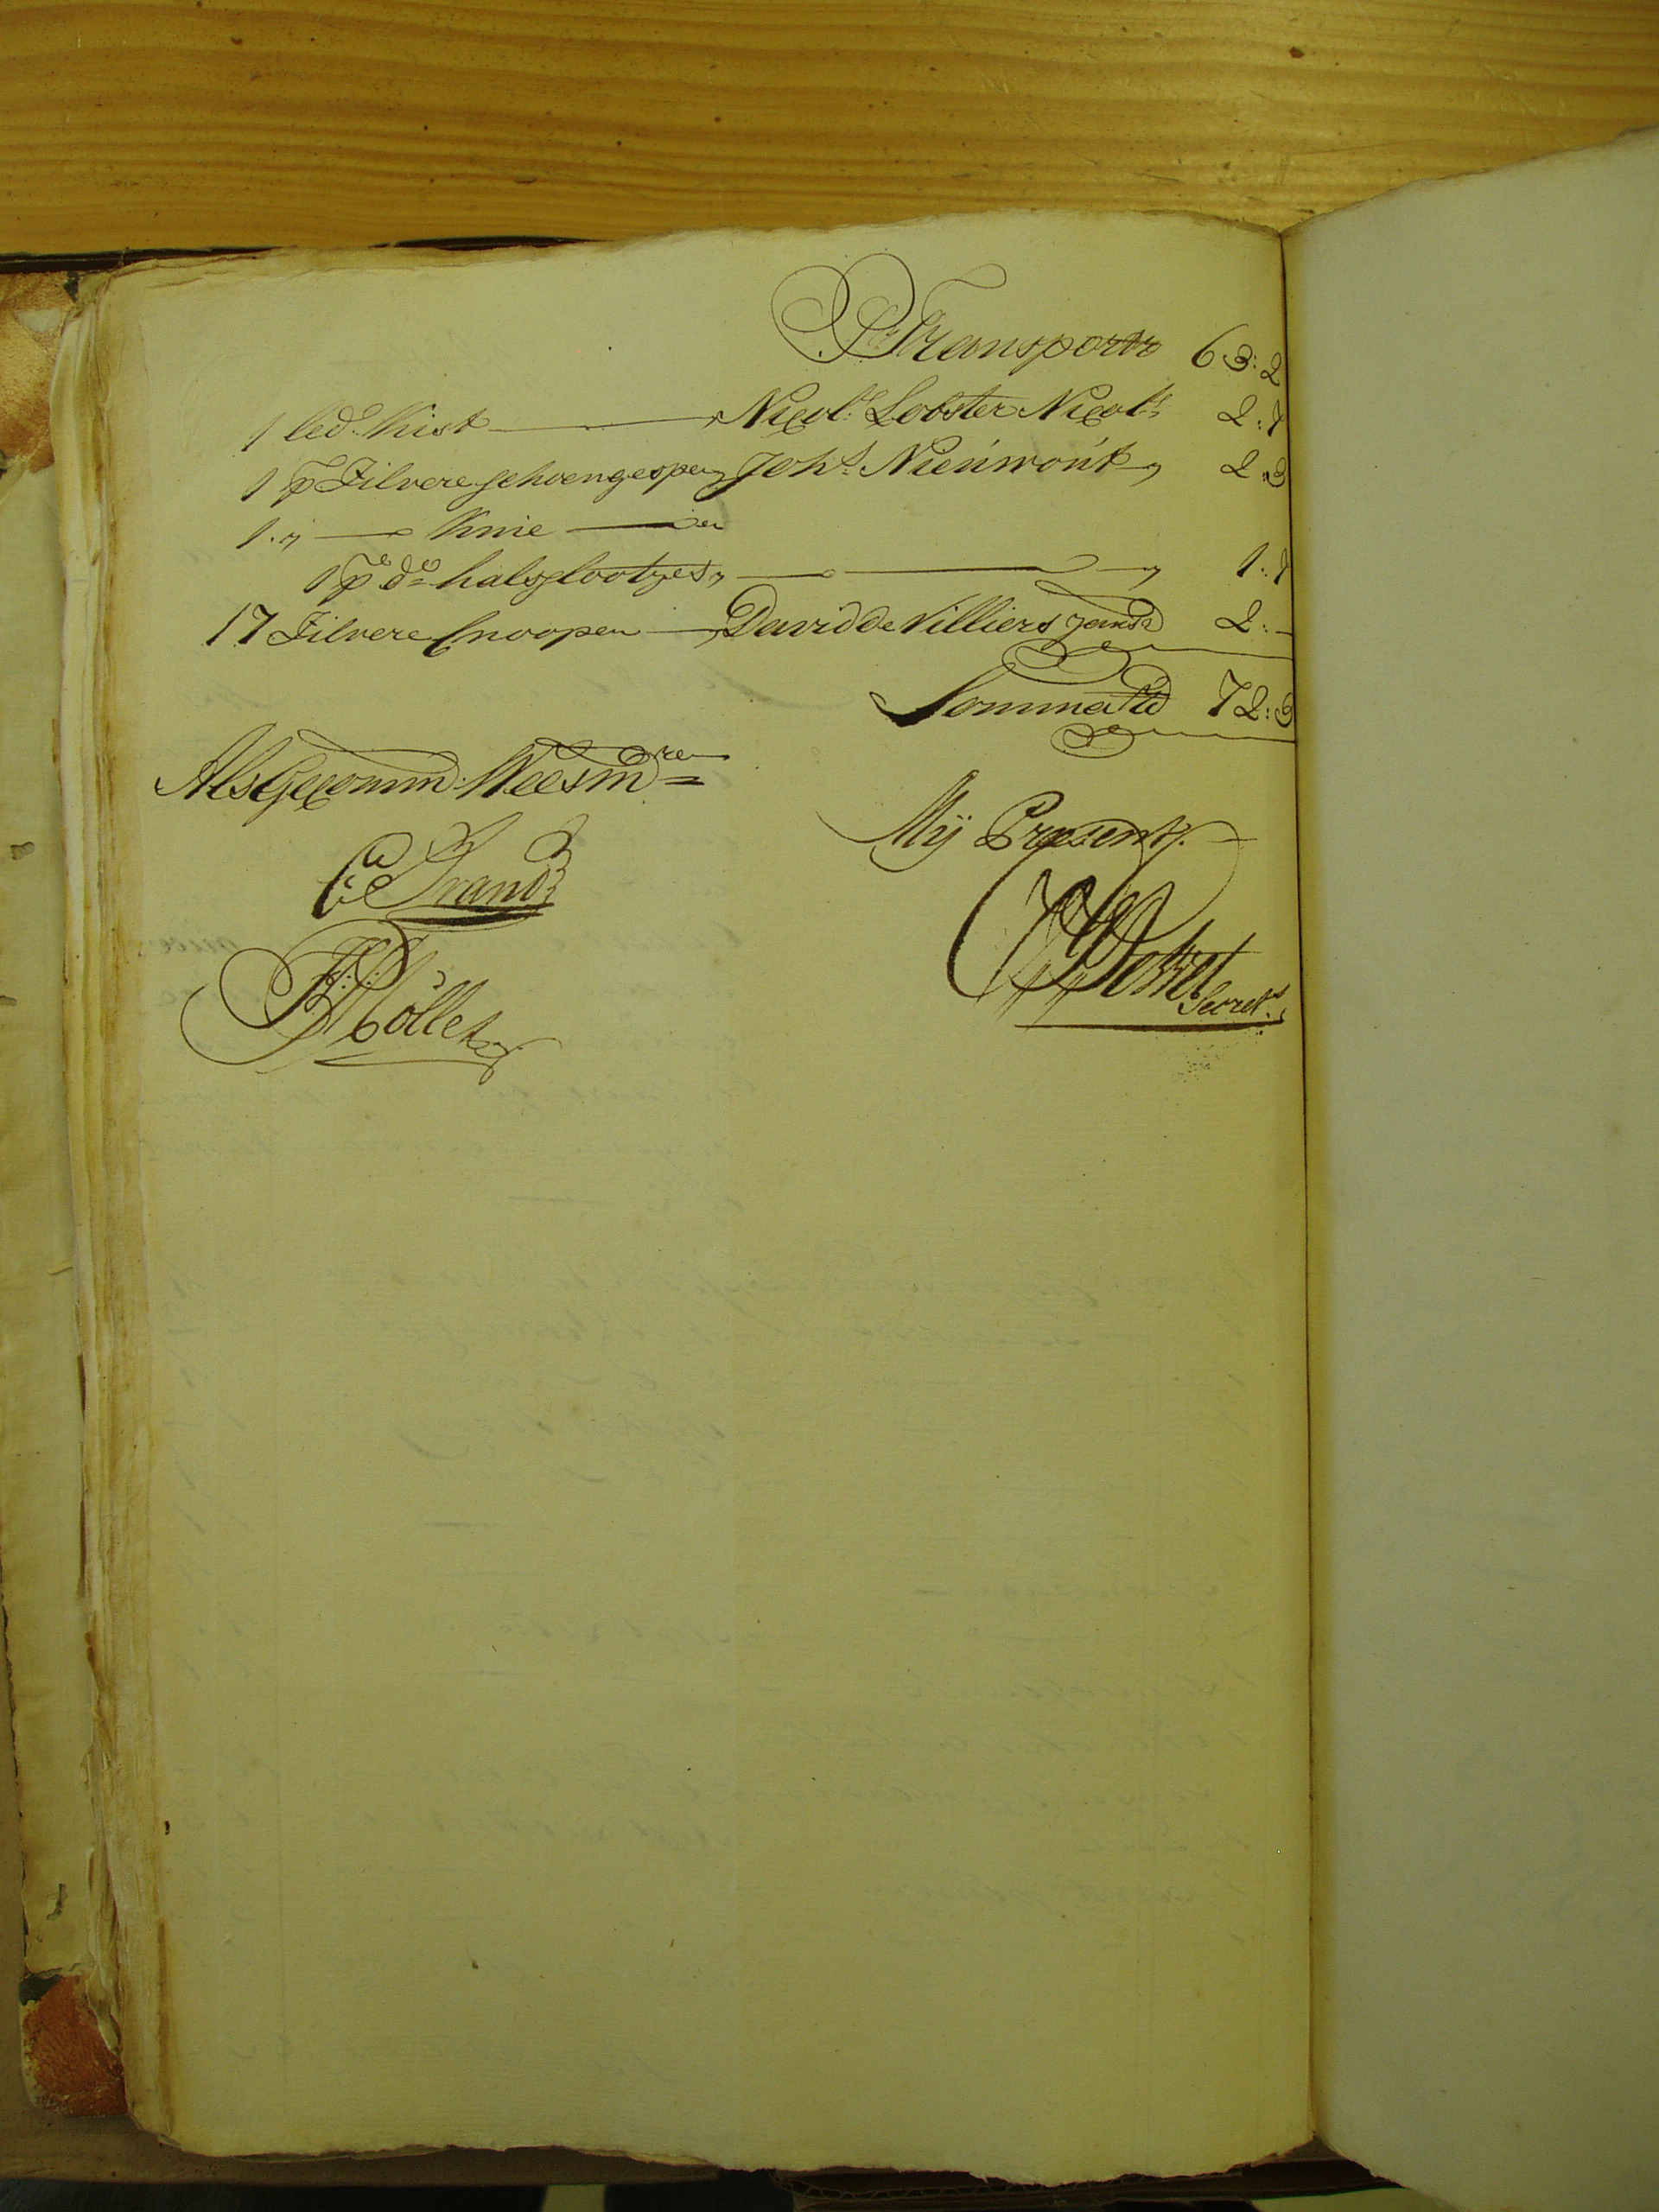 P.r Transport 63:2
1 led.e Kist — Nicol.s Lobster Nicol.s 2:1
1 p.r Zilvere schoengespen Joh.s Nieuwoút „ 2:3
1 „ — Knie — en
1 p.r d.o halsslootjes „ — — „ 1:1
17 Zilvere Cnoopen — David de Villiers Jansz 2:-
Somma Rd 72:
Als Gecomm: Weesm.ren
C Brand
Möller
Mij Præsent.
Secret.s